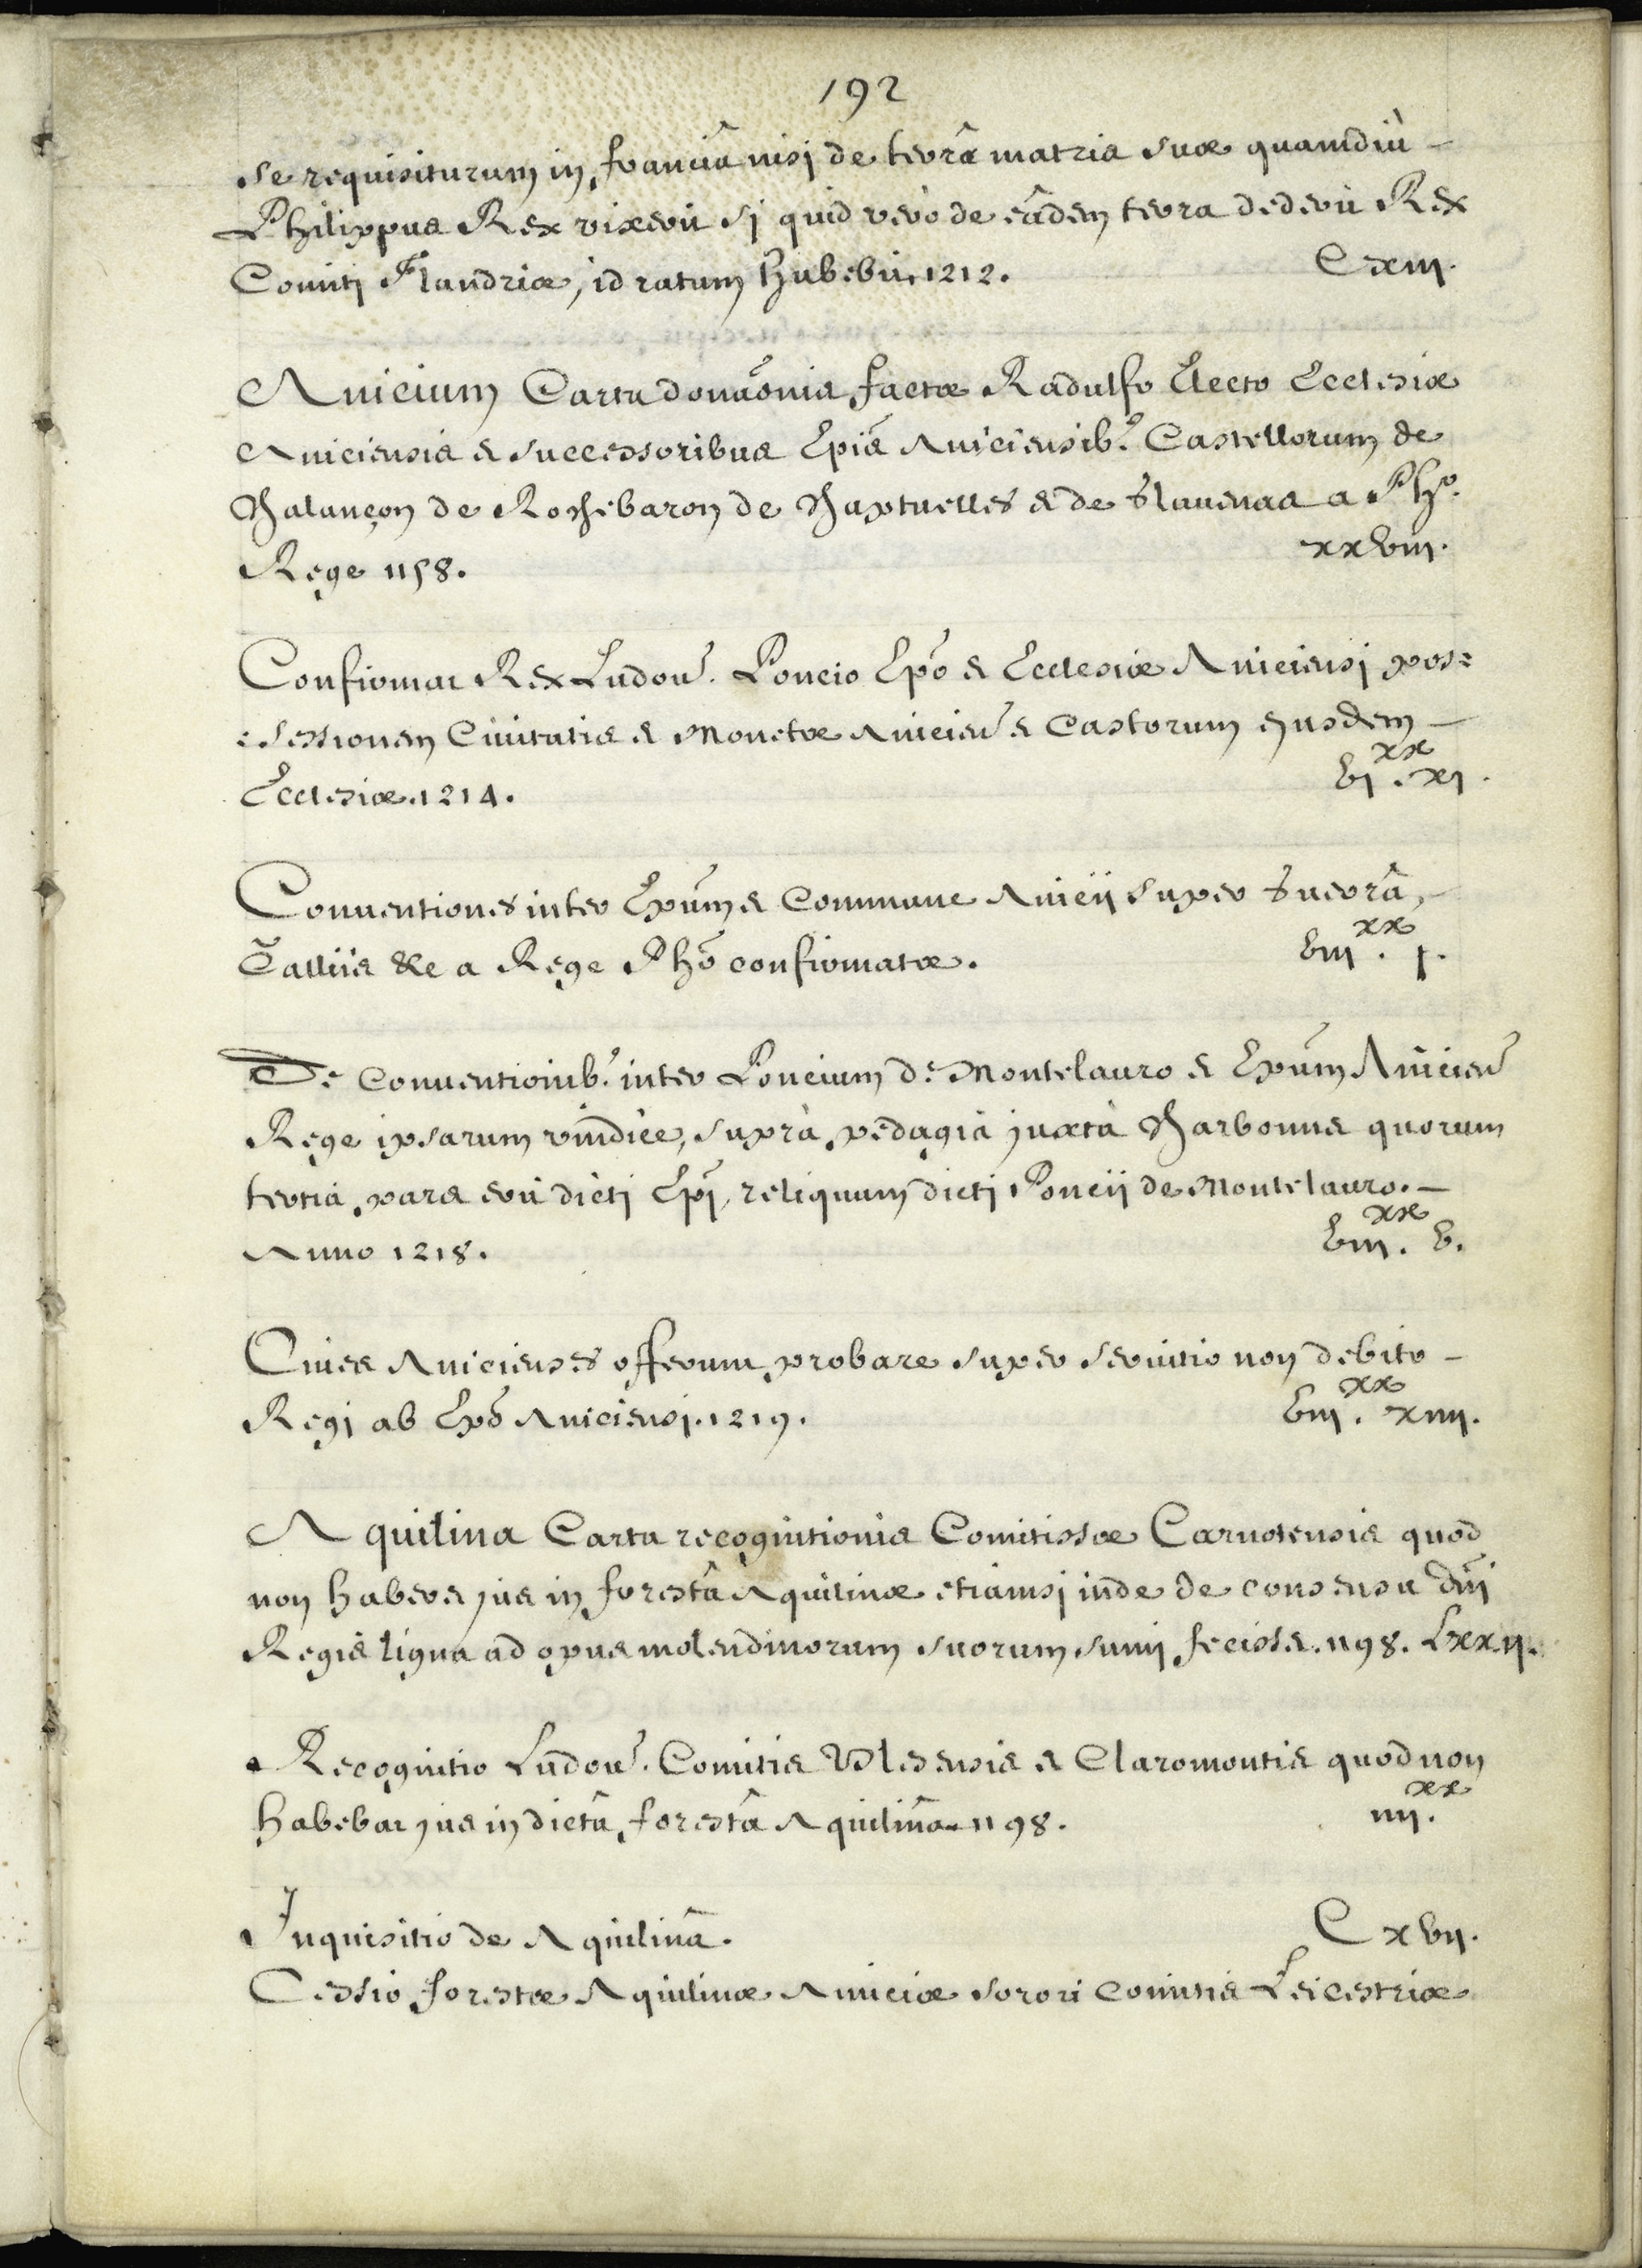 192
se requisiturum in franciâ nisi de terrâ matris suæ quamdiù –
Philippus Rex vixerit si quid verò de eâdem terra dederit Rex
Comiti Flandriæ, id ratum habebit, 1212. Cxiii.
Anicium Carta donaõnis factæ Radulfo Electo Ecclesiæ
Aniciensis & successoribus Epis̃ Aniciensib9. Castellorum de
Chalançon de Rochebaron de Chaptuelles & de Glauenas a Pho.
Rege 1158. xxviii.
Confirmat Rex Ludou9. Poncio Epõ & Ecclesiæ Aniciensi pos=
=sessionem Ciuitatis & Monetæ Anicień & Castorum ejusdem –
Ecclesiæ. 1214. vi xx. xi.
Conuentiones inter Epũm & Commune Anicii super Guerrâ, –
Talliis &c a Rege Phõ confirmatæ. viii xx. j.
De Conuentionib9. inter Poncium de Montelauro & Epũm Anicień
Rege ipsarum vindice, suprà pedagia juxtà Charbonns quorum
tertia pars erit dicti Epĩ, reliquum dicti Poncii de Montelauro. –
Anno 1218. viii xx. v.
Ciues Anicienses offerunt probare super seruitio non debito –
Regi ab Epõ Aniciensi. 1219. viii xx. xiiii.
Aquilina Carta recognitionis Comitissæ Carnotensis quod
non habere jus in forestâ Aquilinæ etiamsi inde de consensu dñi
Regis ligna ad opus molendinorum suorum sumi fecisse. 1198. Lxxii.
Recognitio Ludou9. Comitis Blesensis & Claromontis quod non
habebat jus in dictâ forestâ Aquilinâ. 1198. iiii xx.
Inquisitio de Aquilinâ. Cxvii.
Cessio forestæ Aquilinæ Amiciæ sorori Comitis Leicestriæ